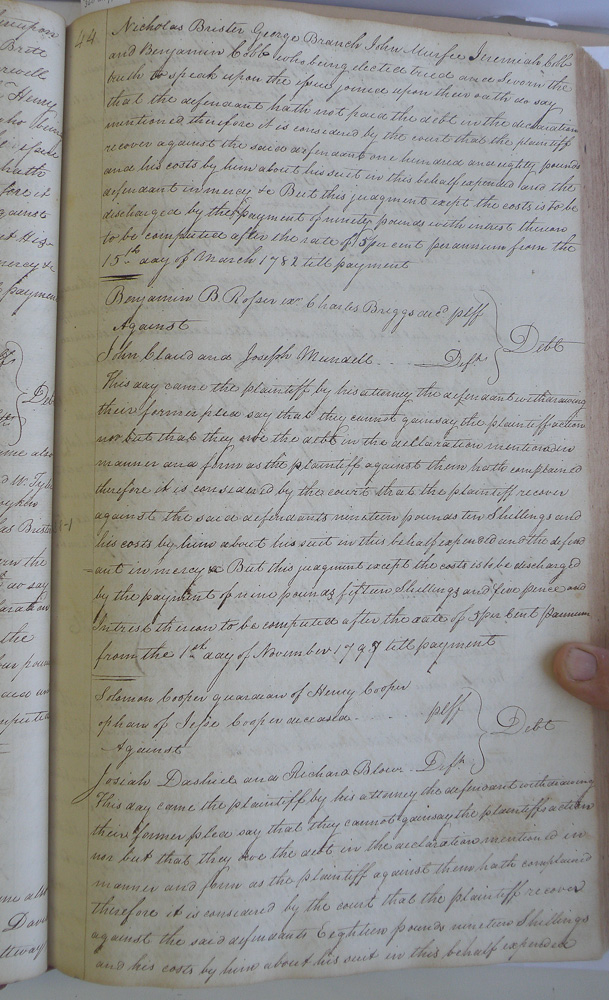 44
Nicholas Brister George Branch John Murfee Jeremiah Cobb
and Benjamin Cobb who being elected tried and Sworn the
truth to speak upon the issue joined upon their oath do say
that the defendant hath not paid the debt in the declaration
mentioned therefore it is considered by the court that the plaintiff
recover against the said defendant one hundred and eighty pounds
and his costs by him about his suit in this behalf expended and the
defendant in mercy &c But this judgment exept the costs is to be
discharged by the payment of ninety pounds with interest thereon
to be computed after the rate of 5 per cent per annum from the
15th day of March 1782 till payment
Benjamin B Rosser exr Charles Briggs decd plff
Against
Debt
John Claud and Joseph Mundell Defts
This day came the plaintiff by his attorney the defendant withdrawing
their former plea say that they cannot gainsay the plaintiff action
nor but that they owe the debt in the declaration mentioned in
manner and form as the plaintiff against them hath complained
therefore it is considered by the court that the plaintiff recover
against the said defendants nineteen pounds ten Shillings and
his costs by him about his suit in this behalf expended and the defend
=ant in mercy &c But this judgment except the costs is to be discharged
by the payment of nine pounds fifteen Shillings and five pence and
Intrest thereon to be computed after the date of 5 per Cent pannum
from the 1st day of November 1797 till payment
Solomon Cooper guardian of Henry Cooper
ophan of Jesse Cooper deceased plff
Against
Debt
Josiah Dashiel and Richard Blow Defts
This day came the plaintiff by his attorney the defendant withdrawing
their former plea say that they cannot gainsay the plaintiffs action
nor but that they owe the debt in the declaration mentioned in
manner and form as the plaintiff against them hath complained
therefore it is considered by the court that the plaintiff recover
against the said defendants Eighteen pounds nineteen Shillings
and his costs by him about his suit in this behalf expended